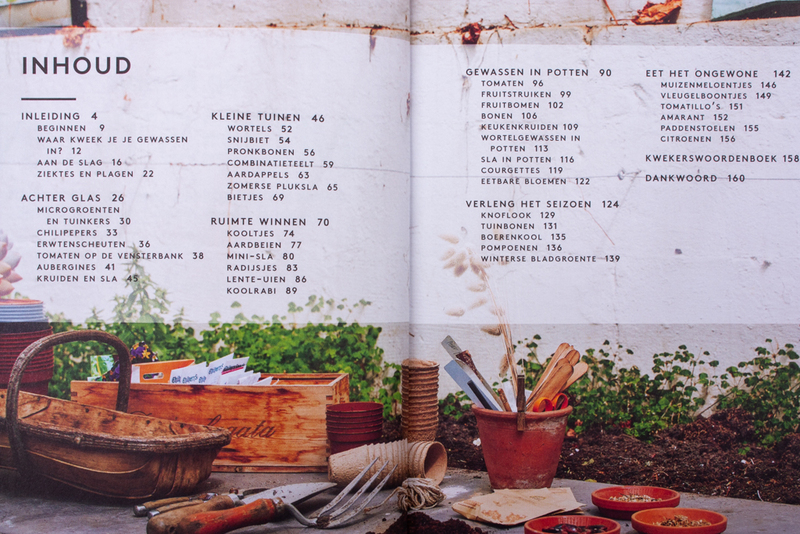 INHOUD
INLEIDING 4
BEGINNEN 9
WAAR KWEEK JE JE GEWASSEN
IN? 12
AAN DE SLAG 16
ZIEKTES EN PLAGEN 22
ACHTER GLAS 26
MICROGROENTEN
EN TUINKERS 30
CHILIPEPERS 33
ERWTENSCHEUTEN 36
TOMATEN OP DE VENSTERBANK 38
AUBERGINES 41
KRUIDEN EN SLA 45
KLEINE TUINEN 46
WORTELS 52
SNIJBIET 54
PRONKBONEN 56
COMBINATIETEELT 59
AARDAPPELS 63
ZOMERSE PLUKSLA 65
BIETJES 69
RUIMTE WINNEN 70
KOOLTJES 74
AARDBEIEN 77
MINI-SLA 80
RADIJSJES 83
LENTE-UIEN 86
KOOLRABI 89
GEWASSEN IN POTTEN 90
TOMATEN 96
FRUITSTRUIKEN 99
FRUITBOMEN 102
BONEN 106
KEUKENKRUIDEN 109
WORTELGEWASSEN IN
POTTEN 113
SLA IN POTTEN 116
COURGETTES 119
EETBARE BLOEMEN 122
VERLENG HET SEIZOEN 124
KNOFLOOK 129
TUINBONEN 131
BOERENKOOL 135
POMPOENEN 136
WINTERSE BLADGROENTE 139
EET HET ONGEWONE 142
MUIZENMELOENTJES 146
VLEUGELBOONTJES 149
TOMATILLO'S 151
AMARANT 152
PADDENSTOELEN 155
CITROENEN 156
KWEKERSWOORDENBOEK 158
DANKWOORD 160